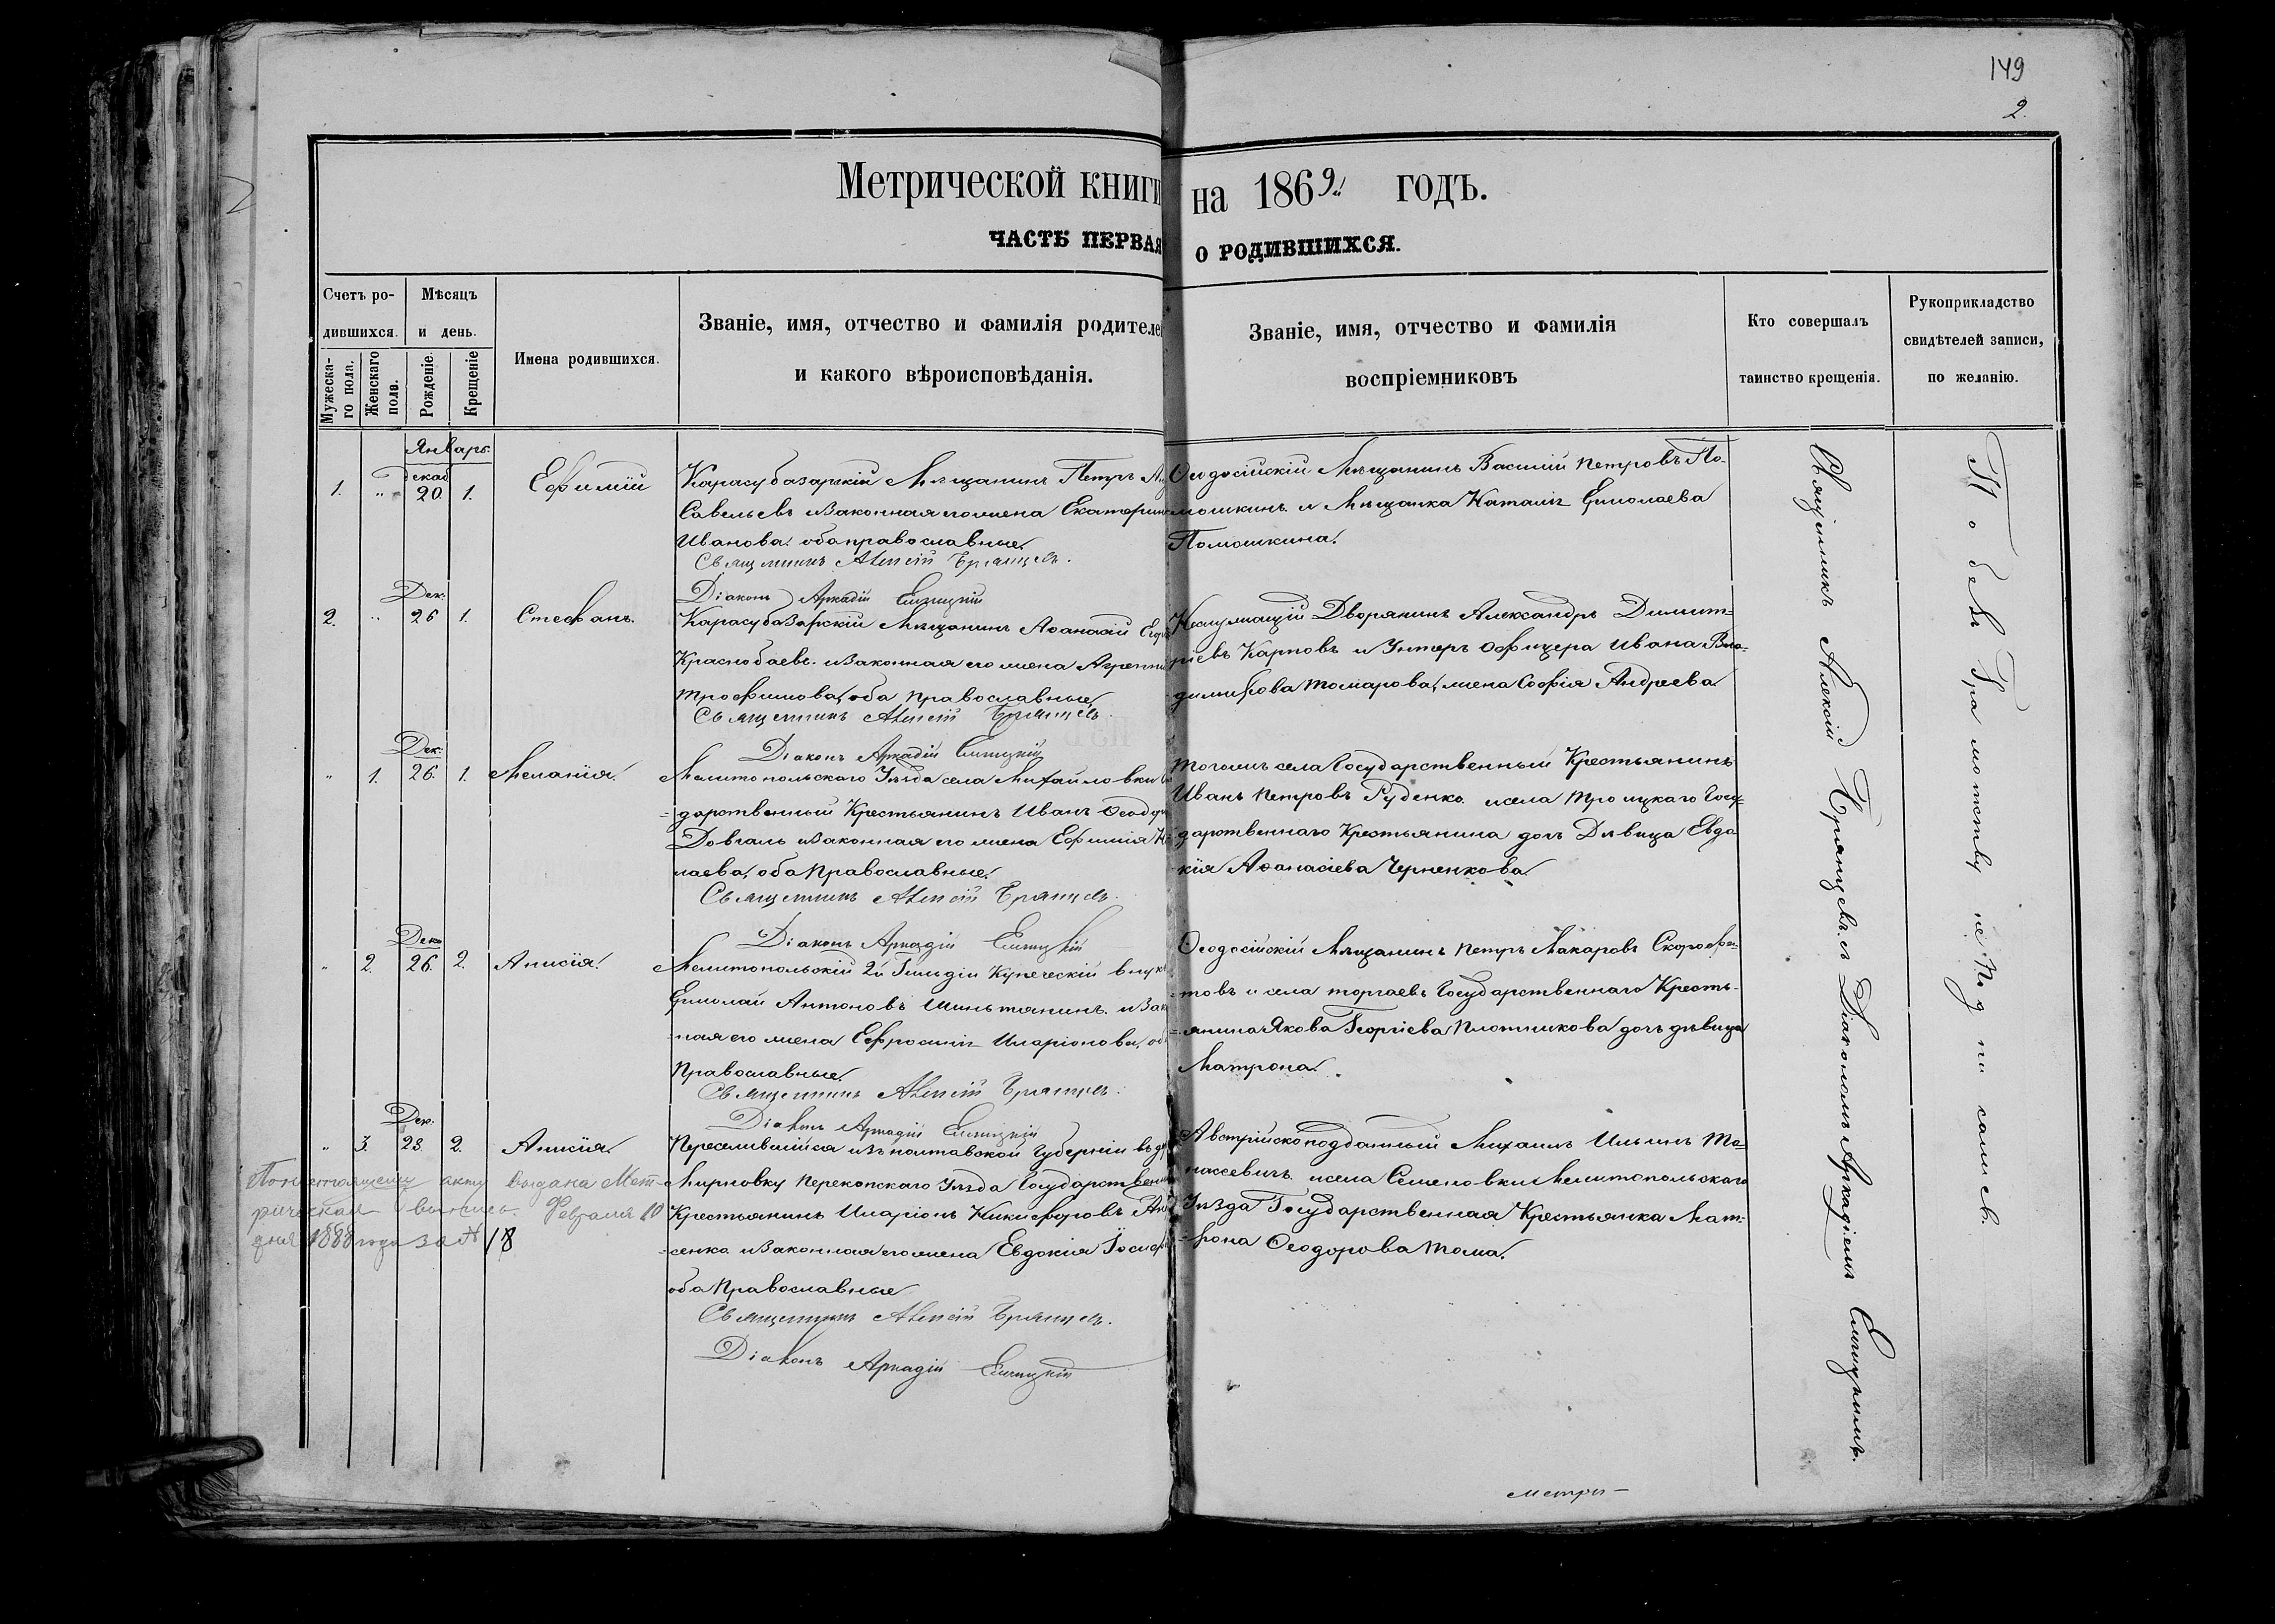 149
2.
Метрической книги на 1869 годъ.
ЧАСТЬ ПЕРВАЯ О РОДИВШИХСЯ.
Счетъ ро-
дившихся.
Мужеска-
го пола.
Женскаго
пола.
Мѣсяцъ
и день.
Рожденіе.
Крещеніе
Имена родившихся.
Званіе, имя, отчество и фамилія родителей
и какого вѣроисповѣданія.
Званіе, имя, отчество и фамилія
воспріемниковъ
Кто совершалъ
таинство крещенія.
Рукоприкладство
свидѣтелей записи,
по желанію.
Январь.
Декаб
1. " 20. 1. Ефимій
Карасубазарскій Мѣщанинъ Петръ
Савельевъ и законная его жена Екатерина
Иванова, оба православные.
Священникъ Алексій Брянцевъ.
Діаконъ Аркадій
Ѳеодосійскій Мѣщанинъ Василій Петровъ По-
мошкинъ и Мѣщанка Наталія Ермолаева
Помошкина.
Дек:
2. " 26 1. Стефанъ.
Карасубазарскій Мѣщанинъ Аѳанасій
Краснобаевъ и законная его жена Агрепина
Трофимова, оба православные,
Священникъ Алексій Брянцевъ.
Діаконъ Аркадій
Дворянинъ Александръ Димит=
ріевъ Карповъ и Унтеръ Офицера Ивана Вла-
димирова Томарова, жена Софія Андреева
Дек:
" 1. 26. 1. Меланія.
Мелитопольскаго Уѣзда села Михайловки
=дарственный Крестьянинъ Иванъ
Довгаль и законная его жена Ефимія
лаева, оба православные.
Священникъ Алексій Брянцевъ.
Діаконъ Аркадій
тогожъ села Государственный Крестьянинъ
Иванъ Петровъ Руденко и села Троицкаго Госу=
дарственнаго Крестьянина дочь Дѣвица Евдо
кія Аѳанасіева Черненкова.
Дек
" 2. 26. 2. Анисія.
Мелитопольскій 2й Гильдіи Купеческій внукъ
Ермолай Антоновъ и зак
ная его жена Ефросинія Иларіонова, об
Православные.
Священникъ Алексій Брянцевъ.
Діаконъ Аркадій
Ѳеодосійскій Мѣщанинъ Петръ Макаровъ
=товъ и села Торгаевъ Государственнаго Кресть-
=янина Якова Георгіева Плотникова дочь дѣвица
Матрона.
Дек.
" 3. 28. 2. Анисія.
Переселившійся изъ Полтавской Губерніи въ
Мирновку Перекопскаго Уѣзда Государственн
Крестьянинъ Иларіонъ Никифоровъ
=сенко и законная его жена Евдокія
оба Православные
Священникъ Алексій Брянцевъ.
Діаконъ Аркадій
Австрійскоподданный Михаилъ Ильинъ
и села Семеновки Мелитопольскаго
Уѣзда Государственная Крестьянка Мат-
=рона Ѳеодорова
По настоящему акту выдана Мет-
рическая выпись Февраля 10
дня 1888 года за № 18
Священникъ Алексій Брянцевъ съ Діакономъ Аркадіемъ
метри-